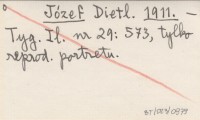 Józef Dietl. 1911. –
Tyg. Il. nr 29: 573, tylko
reprod. portretu.